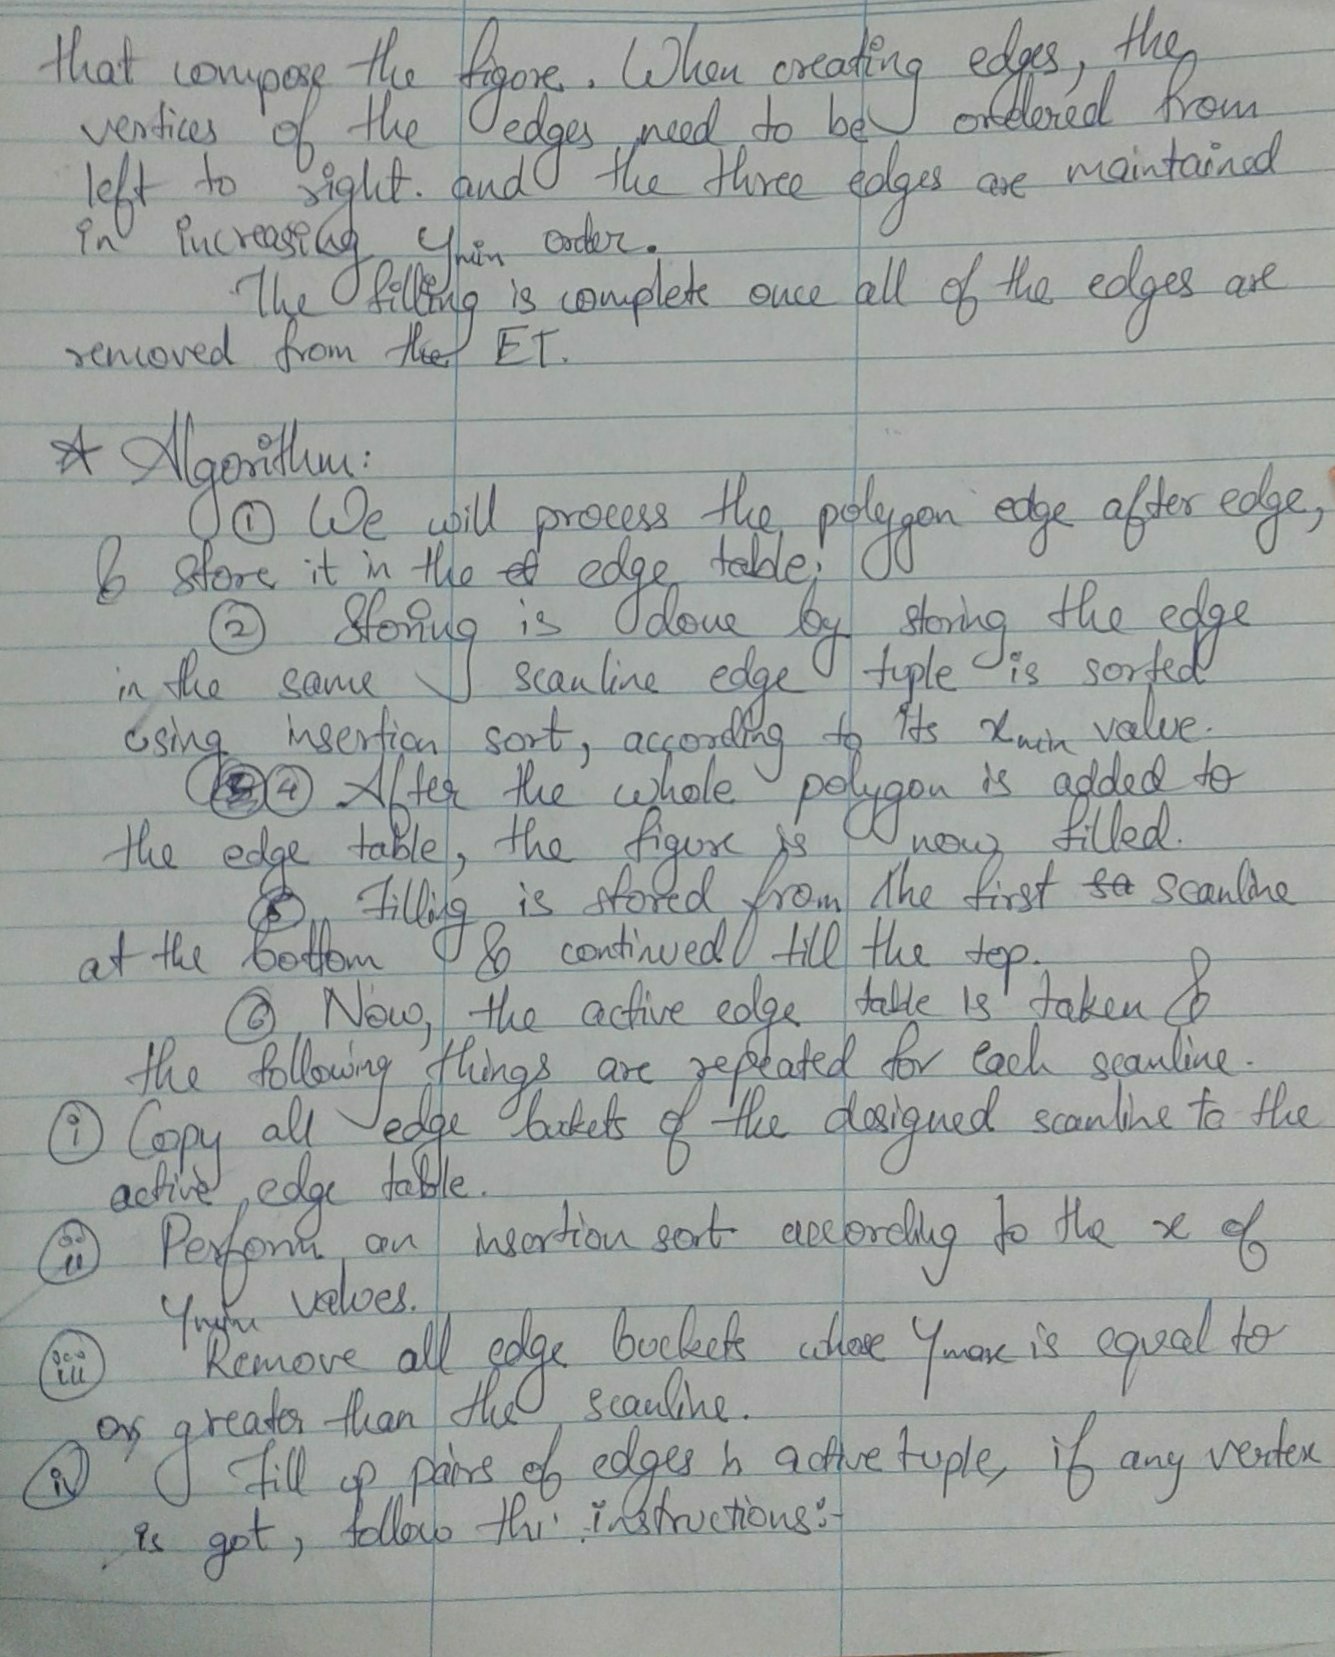 that compose the figore. When creating edges, the
vertices of the edges need to be ordered from
left to right. and the three edges are maintained
in increasing Ymin order.
The filling is complete once all of the edges are
removed from the ET.
☆ Algorithm:
① We will process the polygon edge after edge,
& store it in the edge table;
② Storing is done by storing the edge
in the same scanline edge tuple is sorted
using insertion sort, according to its xmin value.
④ After the whole polygon is added to
the edge table, the figure is now filled.
⑤ Filling is stored from the first scanline
at the bottom & continued till the top.
⑥ Now, the active edge table is taken &
the following things are repeated for each scanline.
ⓘ Copy all edge buckets of the designed scanline to the
active edge table.
(ii) Perform an insertion sort according to the x of
Ymin values.
(iii) Remove all edge buckets whose Ymax is equal to
or greater than the scanline.
(iv) Fill up pairs of edges in active tuple, if any vertex
is got, follow the instructions:-